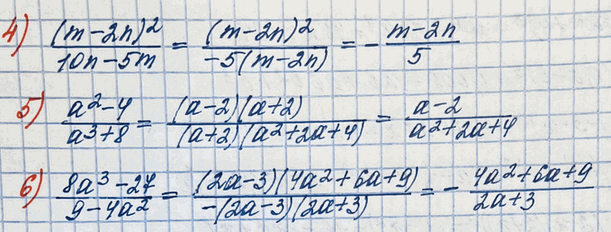 4) (m-2n)²/(10n-5m) = (m-2n)²/(-5(m-2n)) = -(m-2n)/5
5) (a²-4)/(a³+8) = ((a-2)(a+2))/((a+2)(a²+2a+4)) = (a-2)/(a²+2a+4)
6) (8a³-27)/(9-4a²) = ((2a-3)(4a²+6a+9))/(-(2a-3)(2a+3)) = -(4a²+6a+9)/(2a+3)